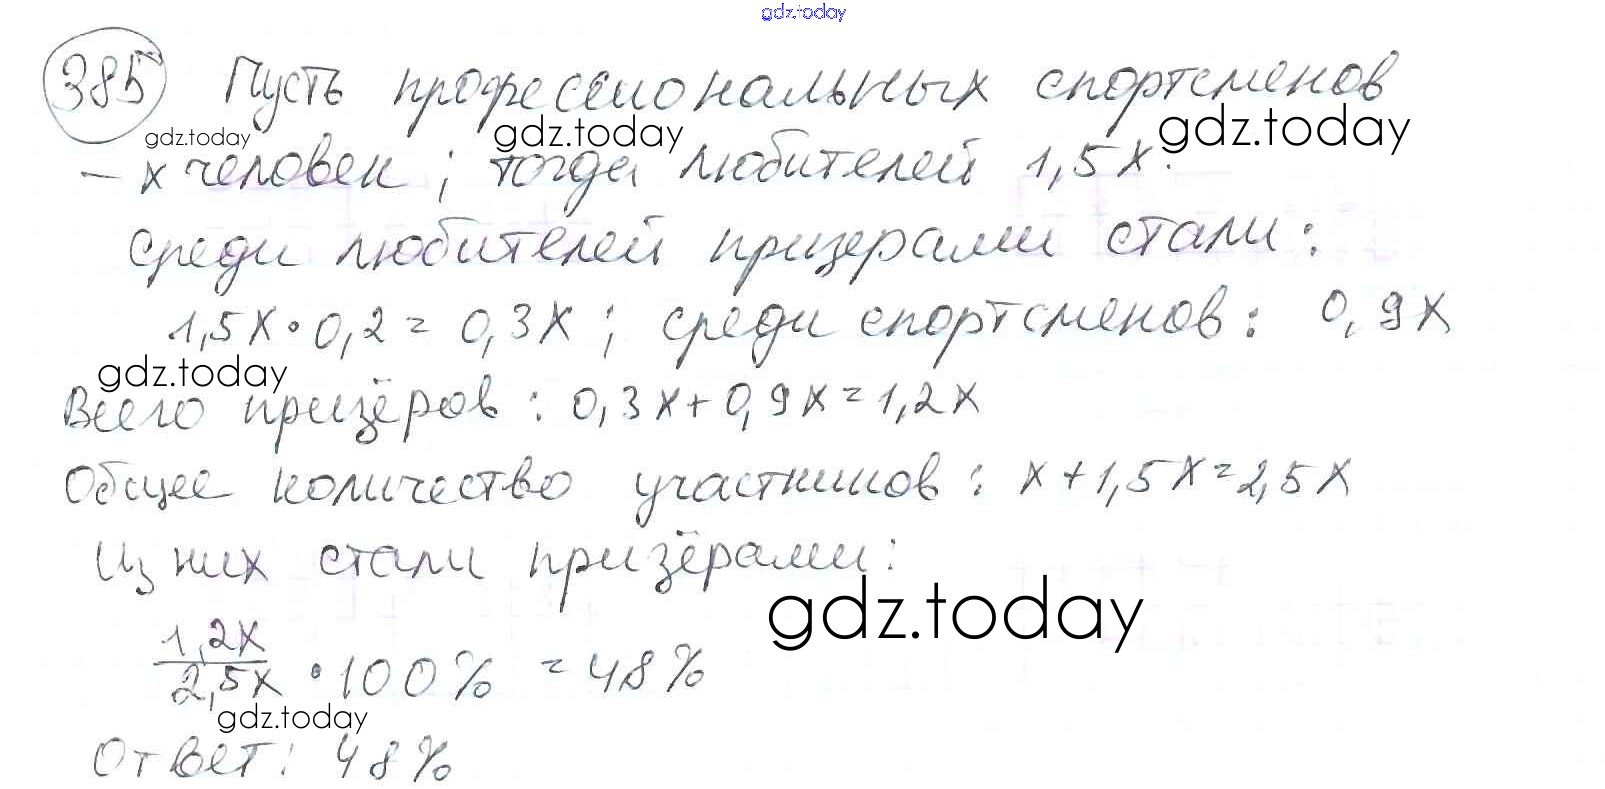 gdz.today
385 Пусть профессиональных спортсменов
gdz.today gdz.today gdz.today
– х человек; тогда любителей 1,5х.
Среди любителей призерами стали:
1,5х·0,2=0,3х; среди спортсменов: 0,9х
gdz.today
Всего призёров: 0,3х+0,9х=1,2х
Общее количество участников: х+1,5х=2,5х
Из них стали призёрами:
gdz.today
1,2х
2,5х ·100% =48%
gdz.today
Ответ: 48%